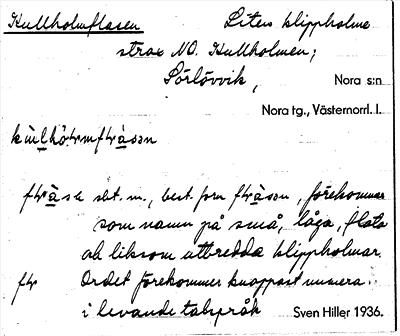 Kullholmflasen Liten klippholme
strax NO. Kullholmen;
Sörlövvik, Nora s:n
Nora tg., Västernorrl. l.
sbt. m., best. form förekommer
som namn på små, låga, flata
och liksom utbredda klippholmar.
Ordet förekommer knappast numera
i levande talspråk Sven Hiller 1936.